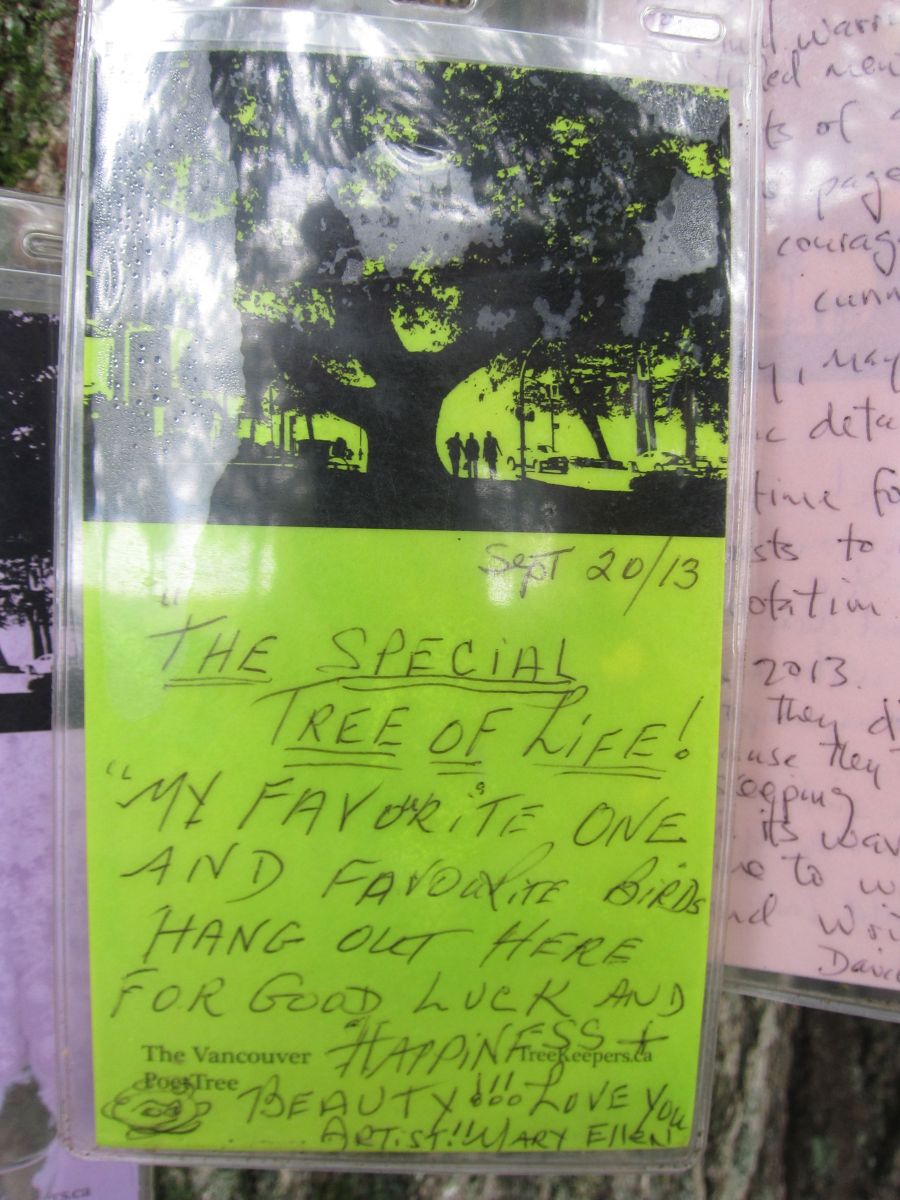 Sept 20/13
"THE SPECIAL
TREE OF LIFE!
"MY FAVOURITE ONE
AND FAVOURITE BIRDS
HANG OUT HERE
FOR GOOD LUCK AND
HAPPINESS +
BEAUTY!!! LOVE YOU
ARTIST!! MARY ELLEN
The Vancouver
PoeTree
TreeKeepers.ca
of
page
courag
cunn
, may
deta
time fo
sts to
otation
2013.
they d
use they
eeping
its wa
to w
nd wri
Davi
rs.ca